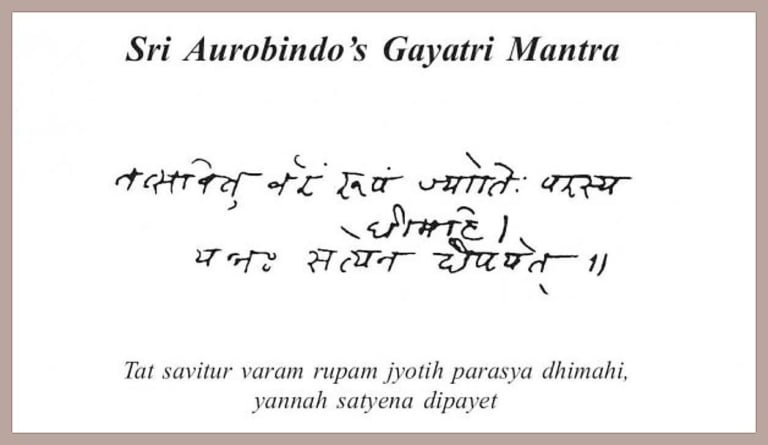 Sri Aurobindo's Gayatri Mantra
तत्सवितुर्वरं रूपं ज्योतिः परस्य
धीमहि ।
यन्नः सत्येन दीपयेत् ॥
Tat savitur varam rupam jyotih parasya dhimahi,
yannah satyena dipayet